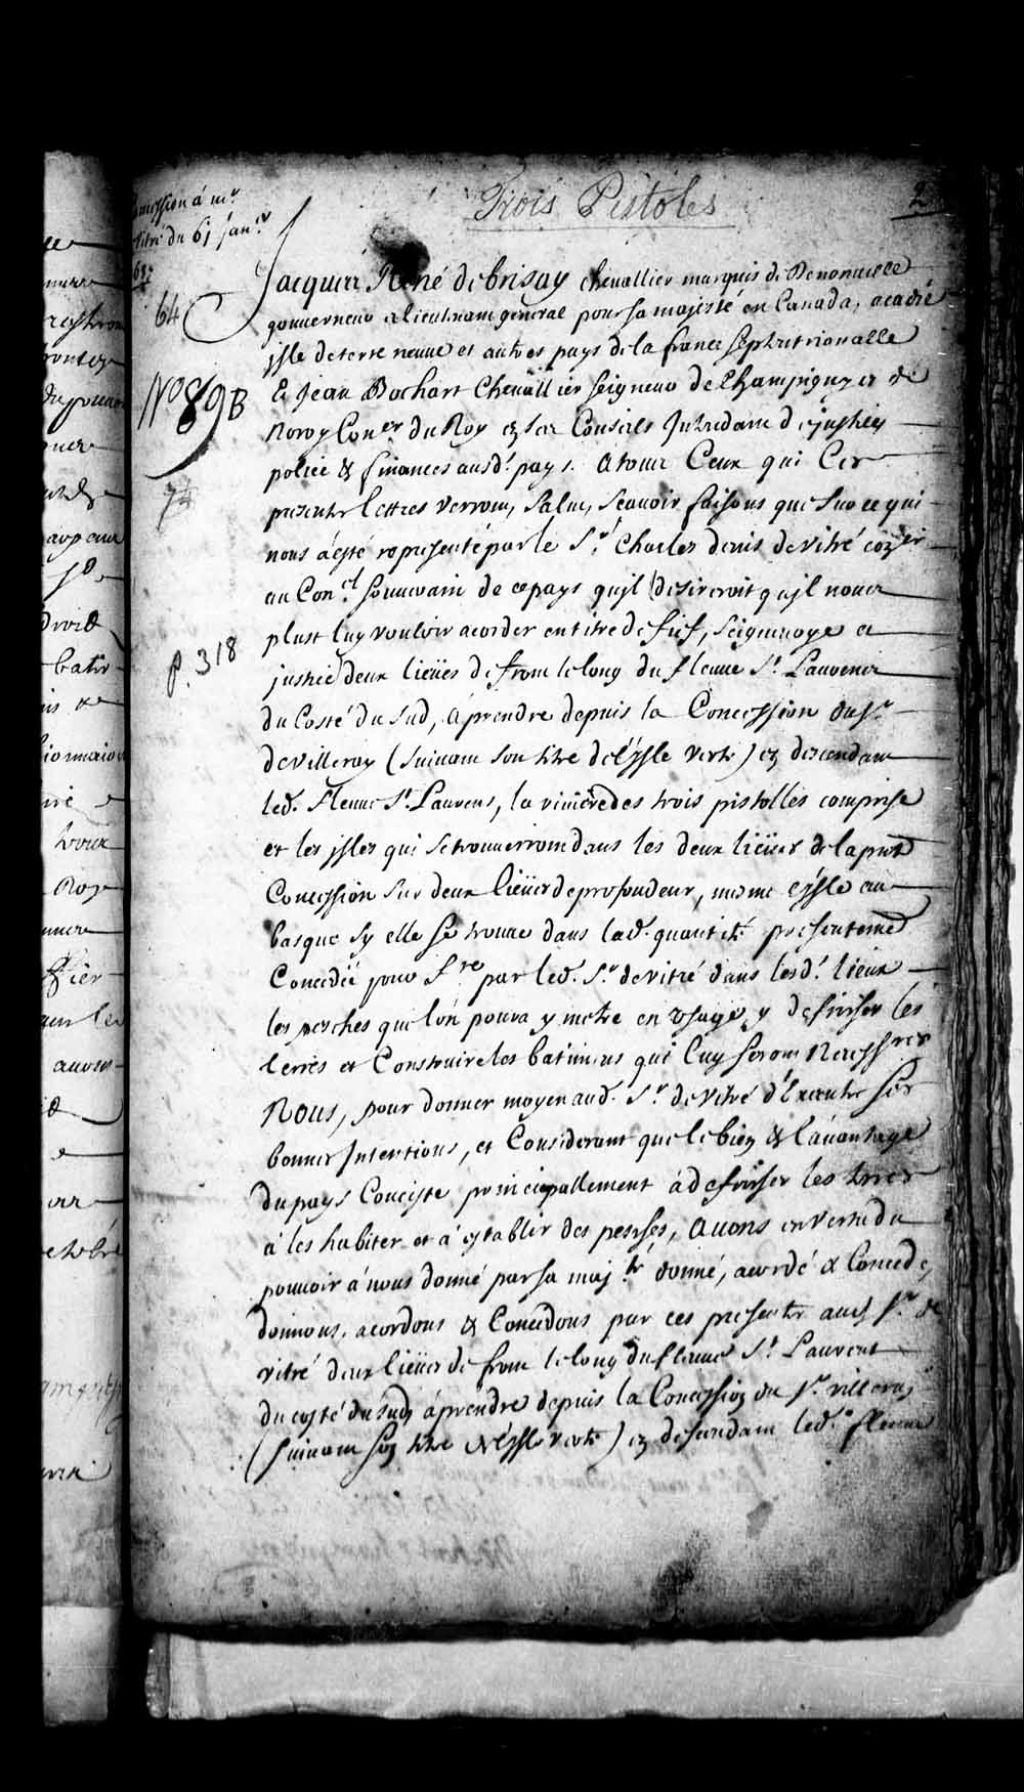 Trois Pistoles
2
Concession á mr
Vitré du 6j janer
1687
64
No 89 B
74
p. 318
Jacques René de brisay chevallier marquis de Denonuille
gouuerneur et lieutenant general pour sa majesté en Canada, acadie
jsle de terre neuue et autres pays de la france septentrionalle
Et Jean Bochart Cheuallier seigneur de Champigny et de
Noroy Coner du Roy en ses Conseils Intendant de justice
police & finances ausd. pays. A tous Ceux qui Ces
presentes lettres verront, salut, sçauoir faisons que sur ce qui
nous á esté representé par le Sr. Charles denis de vitré coner
au Conel souuerain de ce pays quil desireroit quil nous
plust luy vouloir acorder en titre de fief, seigneurye et
justice deux lieües de front le long du fleuue St. Laurens
du Costé du Sud, á prendre depuis la Concession du Sr
de villeray (suiuant son titre de l'jsle verte) en descendant
led. fleuue St. Laurens, la riuiere des trois pistolles comprise
et les jsles qui se trouuerront dans les deux lieües de la pnte
Concession sur deux lieües de profondeur, mesme l'jsle au
basque sy elle se trouue dans lad. quantité presentement
Concedée pour fre par led. Sr. de vitré dans lesd. lieux
les pesches que l'on poura y metre en vsage, y defricher les
terres et Construire les batimens qui luy seront Necessres
Nous, pour donner moyen aud. Sr. de vitré d'Executer ses
bonnes Intentions, et Considerant que le bien & l'áuantage
du pays Conciste principallement á defricher les terres
á les habiter et á establir des pesches, Auons en vertu du
pouuoir á nous donné par sa majté donné, acordé & Concedé,
donnons, acordons & Concedons par ces presentes aud. Sr. de
vitré deux lieües de front le long du fleuue St. Laurent
du costé du sud, á prendre depuis la Concession du Sr. villeray
(suiuant son titre de l'jsle verte) en desendant led. fleuue